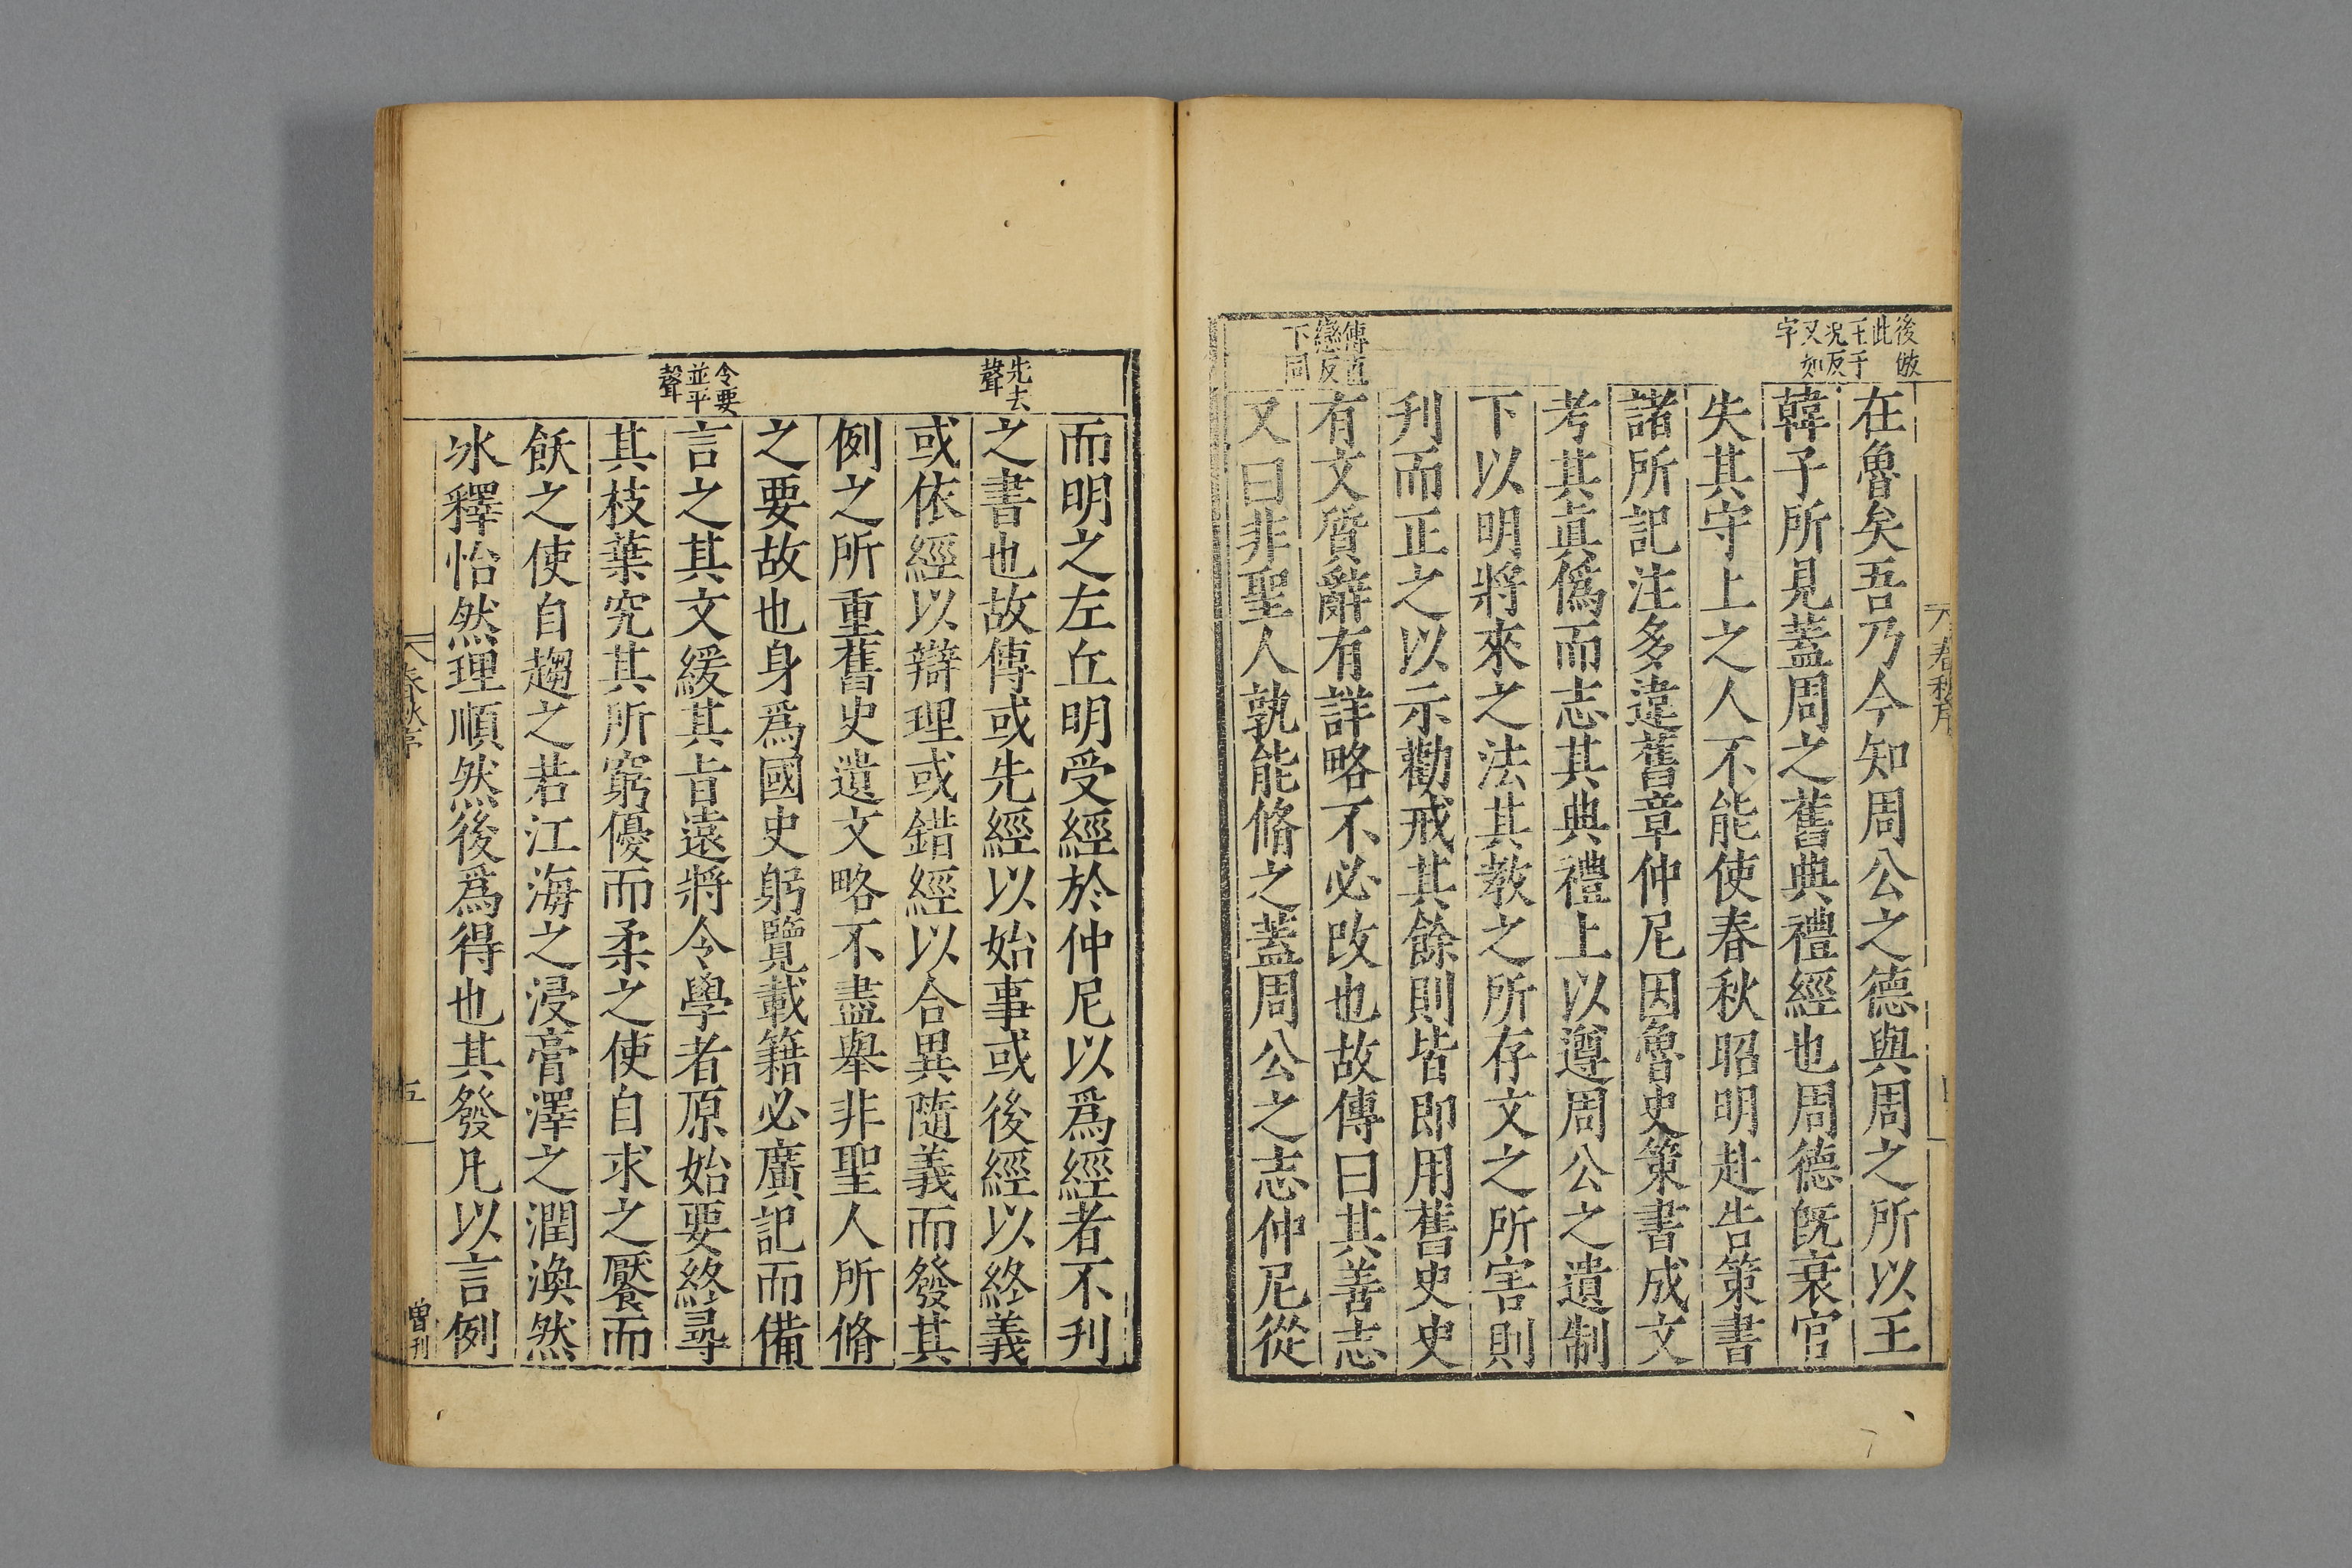 後倣
此
王于
况反
又如
字
傳直
戀反
下同
在魯矣吾乃今知周公之德與周之所以王
韓子所見蓋周之舊典禮經也周德旣衰官
失其守上之人不能使春秋昭明赴告策書
諸所記注多違舊章仲尼因魯史策書成文
考其眞僞而志其典禮上以遵周公之遺制
下以明將來之法其教之所存文之所害則
刋而正之以示勸戒其餘則皆即用舊史史
有文質辭有詳略不必改也故傳曰其善志
又曰非聖人孰能脩之蓋周公之志仲尼從
春秋序
先去
聲
令要
並平
聲
而明之左丘明受經於仲尼以爲經者不刋
之書也故傳或先經以始事或後經以終義
或依經以辯理或錯經以合異隨義而發其
例之所重舊史遺文略不盡舉非聖人所脩
之要故也身爲國史躬覽載籍必廣記而備
言之其文緩其旨遠將令學者原始要終尋
其枝葉究其所窮優而柔之使自求之饜而
飫之使自趨之若江海之浸膏澤之潤渙然
冰釋怡然理順然後爲得也其發凡以言例
春秋序
五
曾刊